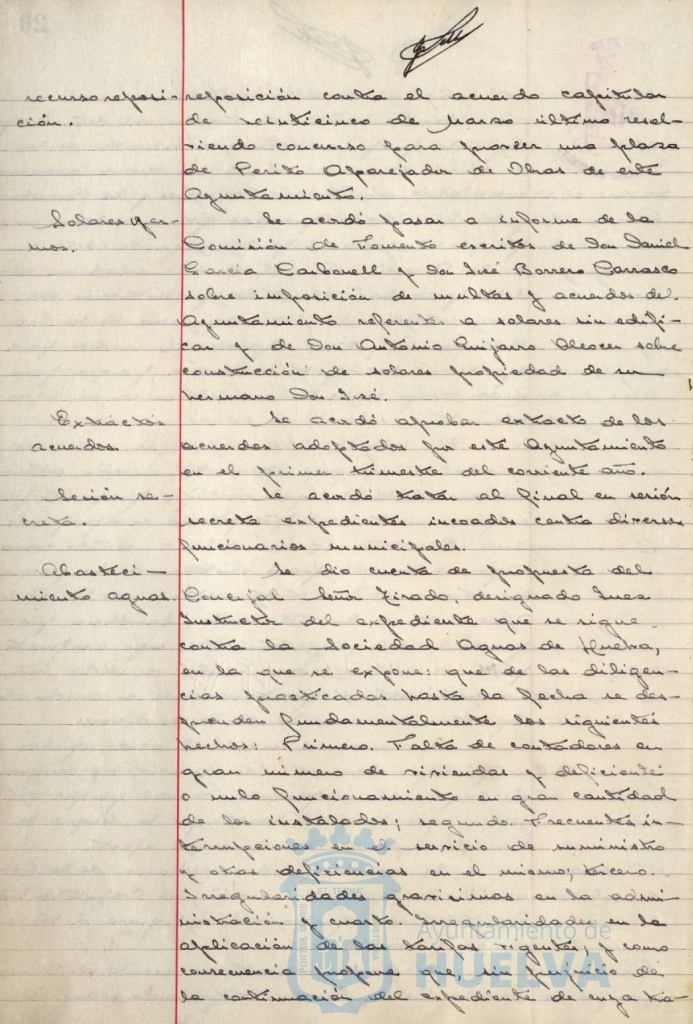 recurso reposi-
ción.
reposición contra el acuerdo capitular
de veinticinco de Marzo último resol-
viendo concurso para proveer una plaza
de Perito Aparejador de Obras de este
Ayuntamiento.
Solares yer-
mos.
Se acordó pasar a informe de la
Comisión de Fomento escritos de Don Daniel
García Carbonell y Don José Borrero Carrasco
sobre imposición de multas y acuerdos del
Ayuntamiento referentes a solares sin edifi-
car y de Don Antonio Guijarro Alcocer sobre
construcción de solares propiedad de su
hermano Don José.
Extractos
acuerdos.
Se acordó aprobar extracto de los
acuerdos adoptados por este Ayuntamiento
en el primer trimestre del corriente año.
Sesión se-
creta.
Se acordó tratar al final en sesión
secreta expedientes incoados contra diversos
funcionarios municipales.
Abasteci-
miento aguas.
Se dio cuenta de propuesta del
Concejal Señor Tirado, designado Juez
Instructor del expediente que se sigue
contra la Sociedad Aguas de Huelva,
en la que se expone: que de las diligen-
cias practicadas hasta la fecha se des-
prenden fundamentalmente los siguientes
hechos: Primero. Falta de contadores en
gran número de viviendas y deficiente
o nulo funcionamiento en gran cantidad
de los instalados; segundo. Frecuentes in-
terrupciones en el servicio de suministro
y otras deficiencias en el mismo; tercero.
Irregularidades gravísimas en la admi-
nistración y cuarto. Irregularidades en la
aplicación de las tarifas vigentes, y como
consecuencia propone que, sin perjuicio de
la continuación del expediente de cuya tra-
Ayuntamiento de
HUELVA